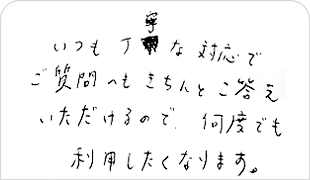 いつも丁寧な対応で
ご質問へもきちんとご答え
いただけるので、何度でも
利用したくなります。